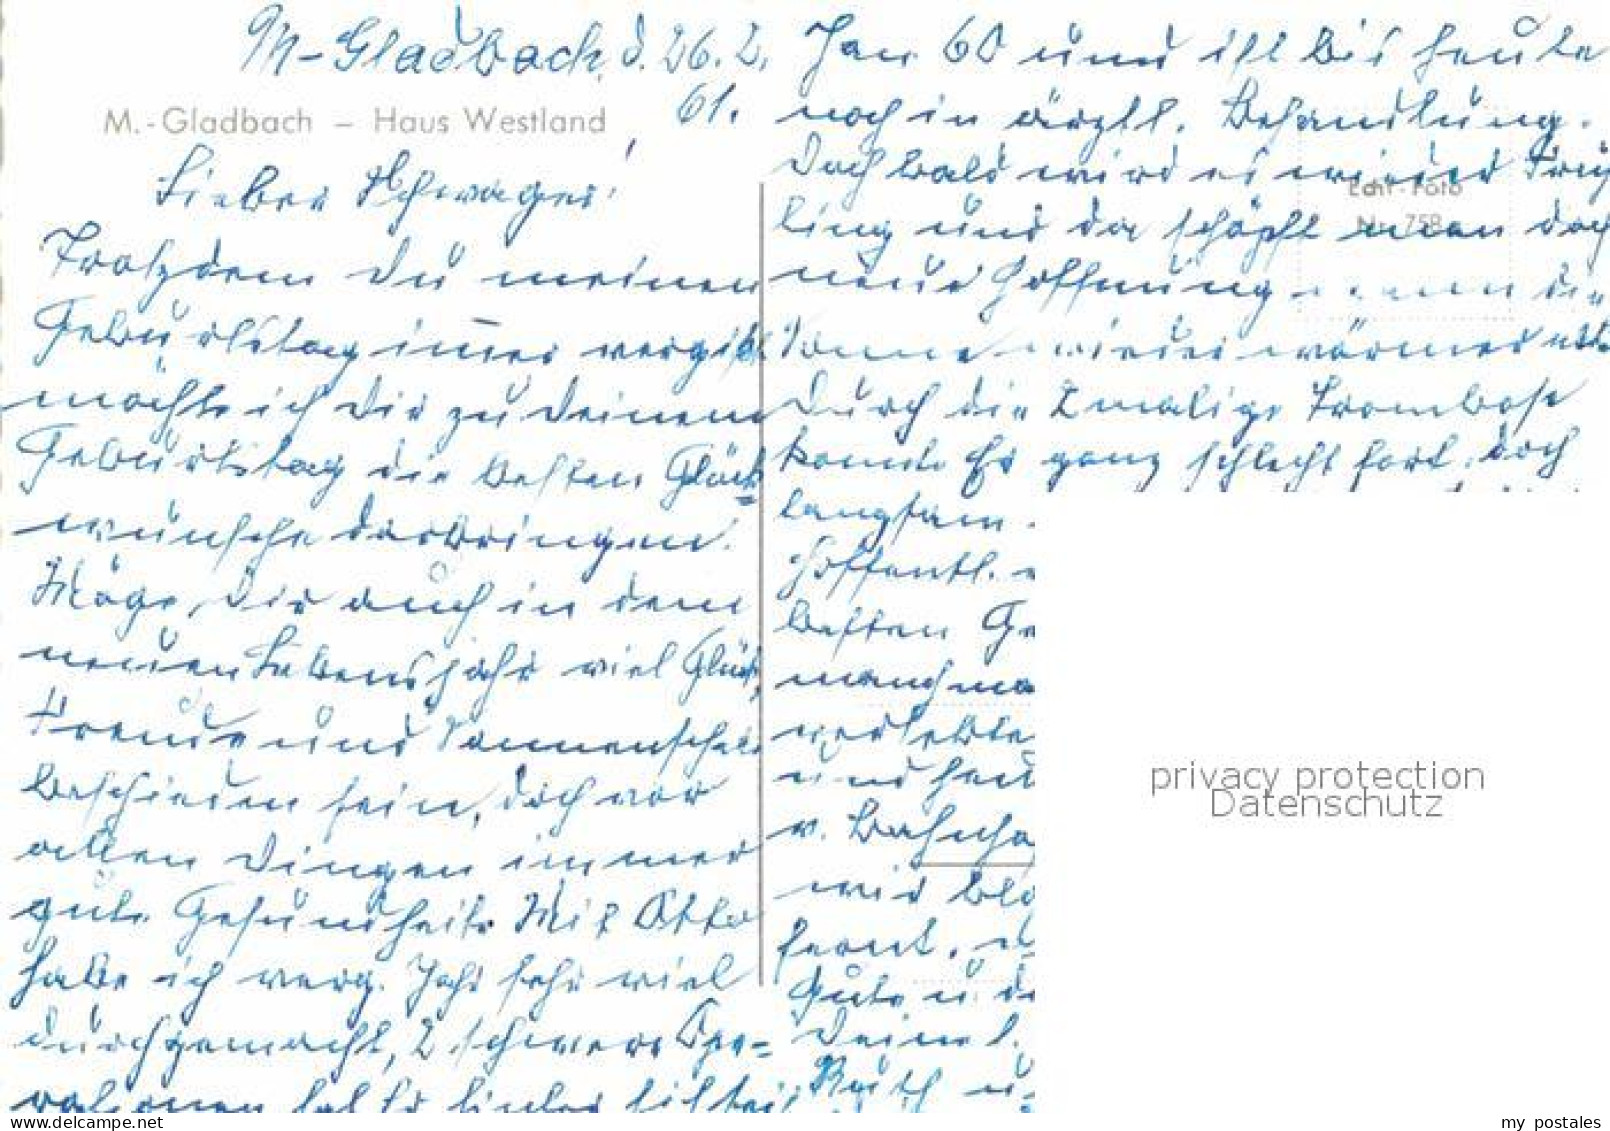 M-Gladbach, d. 26. 2.
61.
M.-Gladbach – Haus Westland
Lieber Schwager!
Trotzdem Du meinen
Geburtstag immer vergißt
möchte ich Dir zu Deinem
Geburtstag die besten Glück=
wünsche darbringen.
Möge Dir auch in dem
neuen Lebensjahr viel Glück,
Freude und Sonnenschein
beschieden sein, doch vor
allen Dingen immer
gute Gesundheit. Mit Otto
habe ich verg. Jahr sehr viel
durchgemacht, 2 schwere Ope=
rationen hat Er hinter
Jan. 60 und ist bis heute
noch in ärztl. Behandlung.
Doch bald wird es wieder Früh
ling und da schöpft man doch
neue Hoffnung wenn die
Sonne wieder wärmer
Durch die 2 malige Trombose
konnte Er ganz schlecht fort, doch
langsam
Hoffentl.
besten Ge
manchma
verlebte
und heu
v. Bahnho
wir
fernt.
Gute u. de
Deine l.
Ruth u.
Echt Foto
Nr. 758
privacy protection
Datenschutz
www.delcampe.net
my_postales